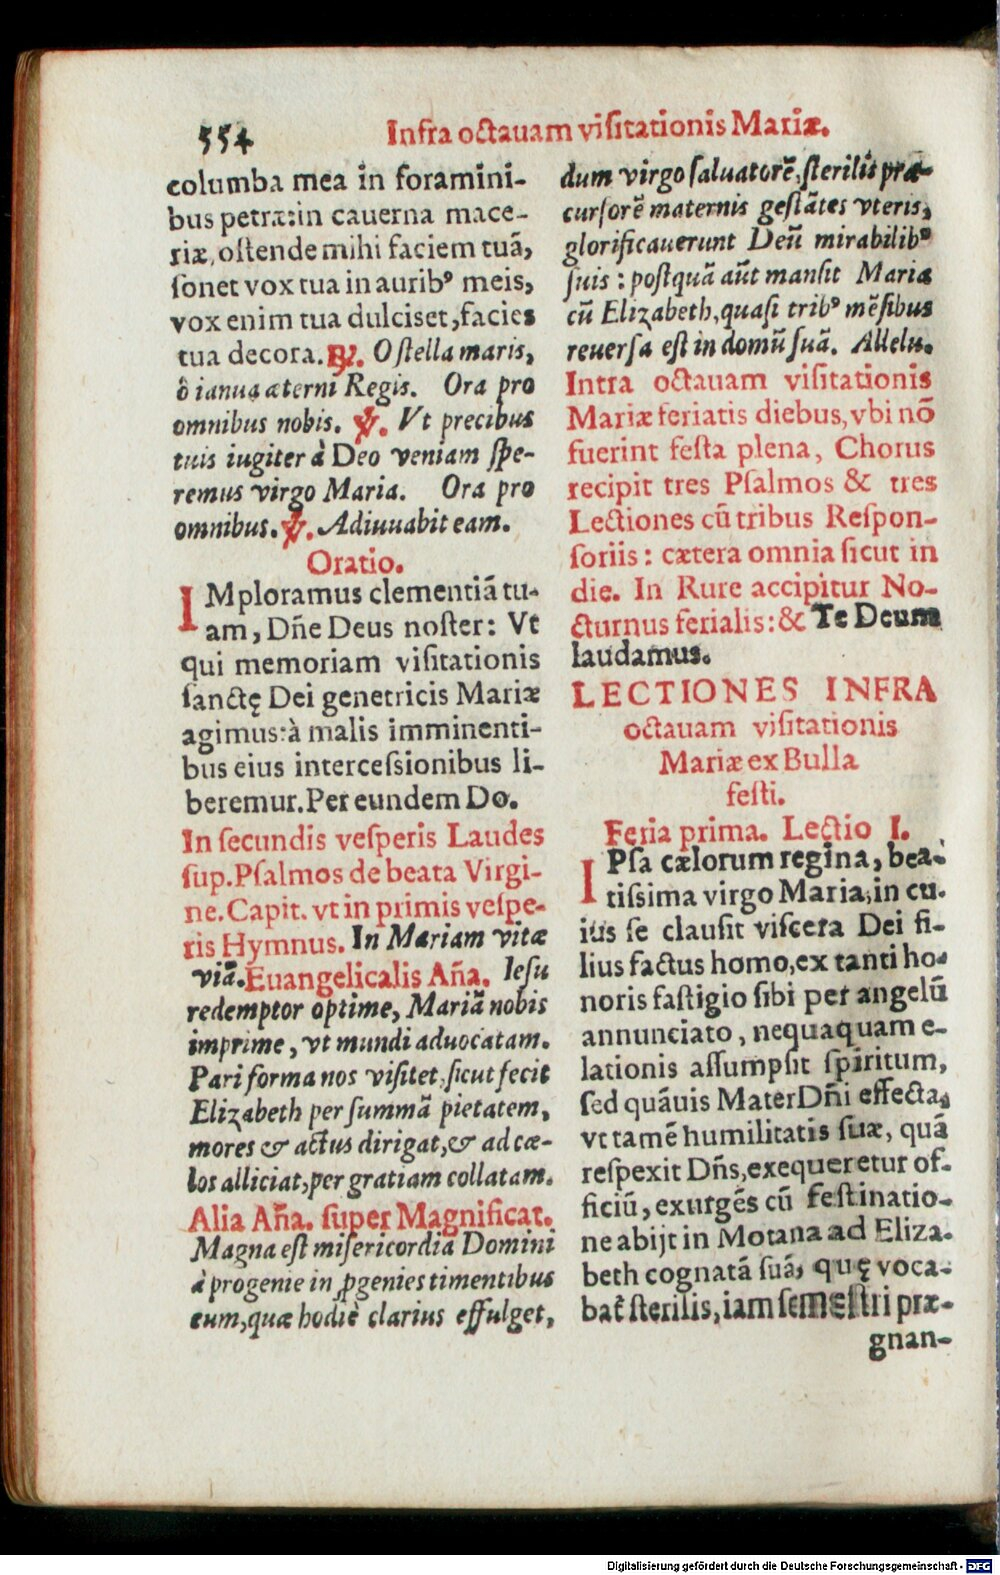 554
Infra octauam visitationis Mariæ.
columba mea in foramini-
bus petræ: in cauerna mace-
riæ, ostende mihi faciem tuã,
sonet vox tua in auribꝰ meis,
vox enim tua dulcis et, facies
tua decora. ℟. O stella maris,
ô ianua æterni Regis. Ora pro
omnibus nobis. ℣. Vt precibus
tuis iugiter à Deo veniam spe-
remus virgo Maria. Ora pro
omnibus. ℣. Adiuuabit eam.
Oratio.
IMploramus clementiã tu-
am, Dñe Deus noster: Vt
qui memoriam visitationis
sanctę Dei genetricis Mariæ
agimus: à malis imminenti-
bus eius intercessionibus li-
beremur. Per eundem Do.
In secundis vesperis Laudes
sup. Psalmos de beata Virgi-
ne. Capit. vt in primis vespe-
ris Hymnus. In Mariam vitæ
viã. Euangelicalis Aña. Iesu
redemptor optime, Mariã nobis
imprime, vt mundi aduocatam.
Pari forma nos visitet, sicut fecit
Elizabeth per summã pietatem,
mores & actus dirigat, & ad cæ-
los alliciat, per gratiam collatam.
Alia Aña. super Magnificat.
Magna est misericordia Domini
à progenie in ꝓgenies timentibus
eum, quæ hodiè clarius effulget,
dum virgo saluatorẽ, sterilis præ-
cursorẽ maternis gestãtes vteris,
glorificauerunt Deũ mirabilibꝰ
suis: postquã aũt mansit Maria
cũ Elizabeth, quasi tribꝰ mẽsibus
reuersa est in domũ suã. Allelu.
Intra octauam visitationis
Mariæ feriatis diebus, vbi nõ
fuerint festa plena, Chorus
recipit tres Psalmos & tres
Lectiones cũ tribus Respon-
soriis: cætera omnia sicut in
die. In Rure accipitur No-
cturnus ferialis: & Te Deum
laudamus.
LECTIONES INFRA
octauam visitationis
Mariæ ex Bulla
festi.
Feria prima. Lectio I.
IPsa cælorum regina, bea-
tissima virgo Maria, in cu-
ius se clausit viscera Dei fi-
lius factus homo, ex tanti ho-
noris fastigio sibi per angelũ
annunciato, nequaquam e-
lationis assumpsit spiritum,
sed quãuis Mater Dñi effecta,
vt tamẽ humilitatis suæ, quã
respexit Dñs, exequeretur of-
ficiũ, exurgẽs cũ festinatio-
ne abijt in Motana ad Eliza-
beth cognatã suã, quę voca-
bat̃ sterilis, iam semestri præ-
gnan-
Digitalisierung gefördert durch die Deutsche Forschungsgemeinschaft - DFG